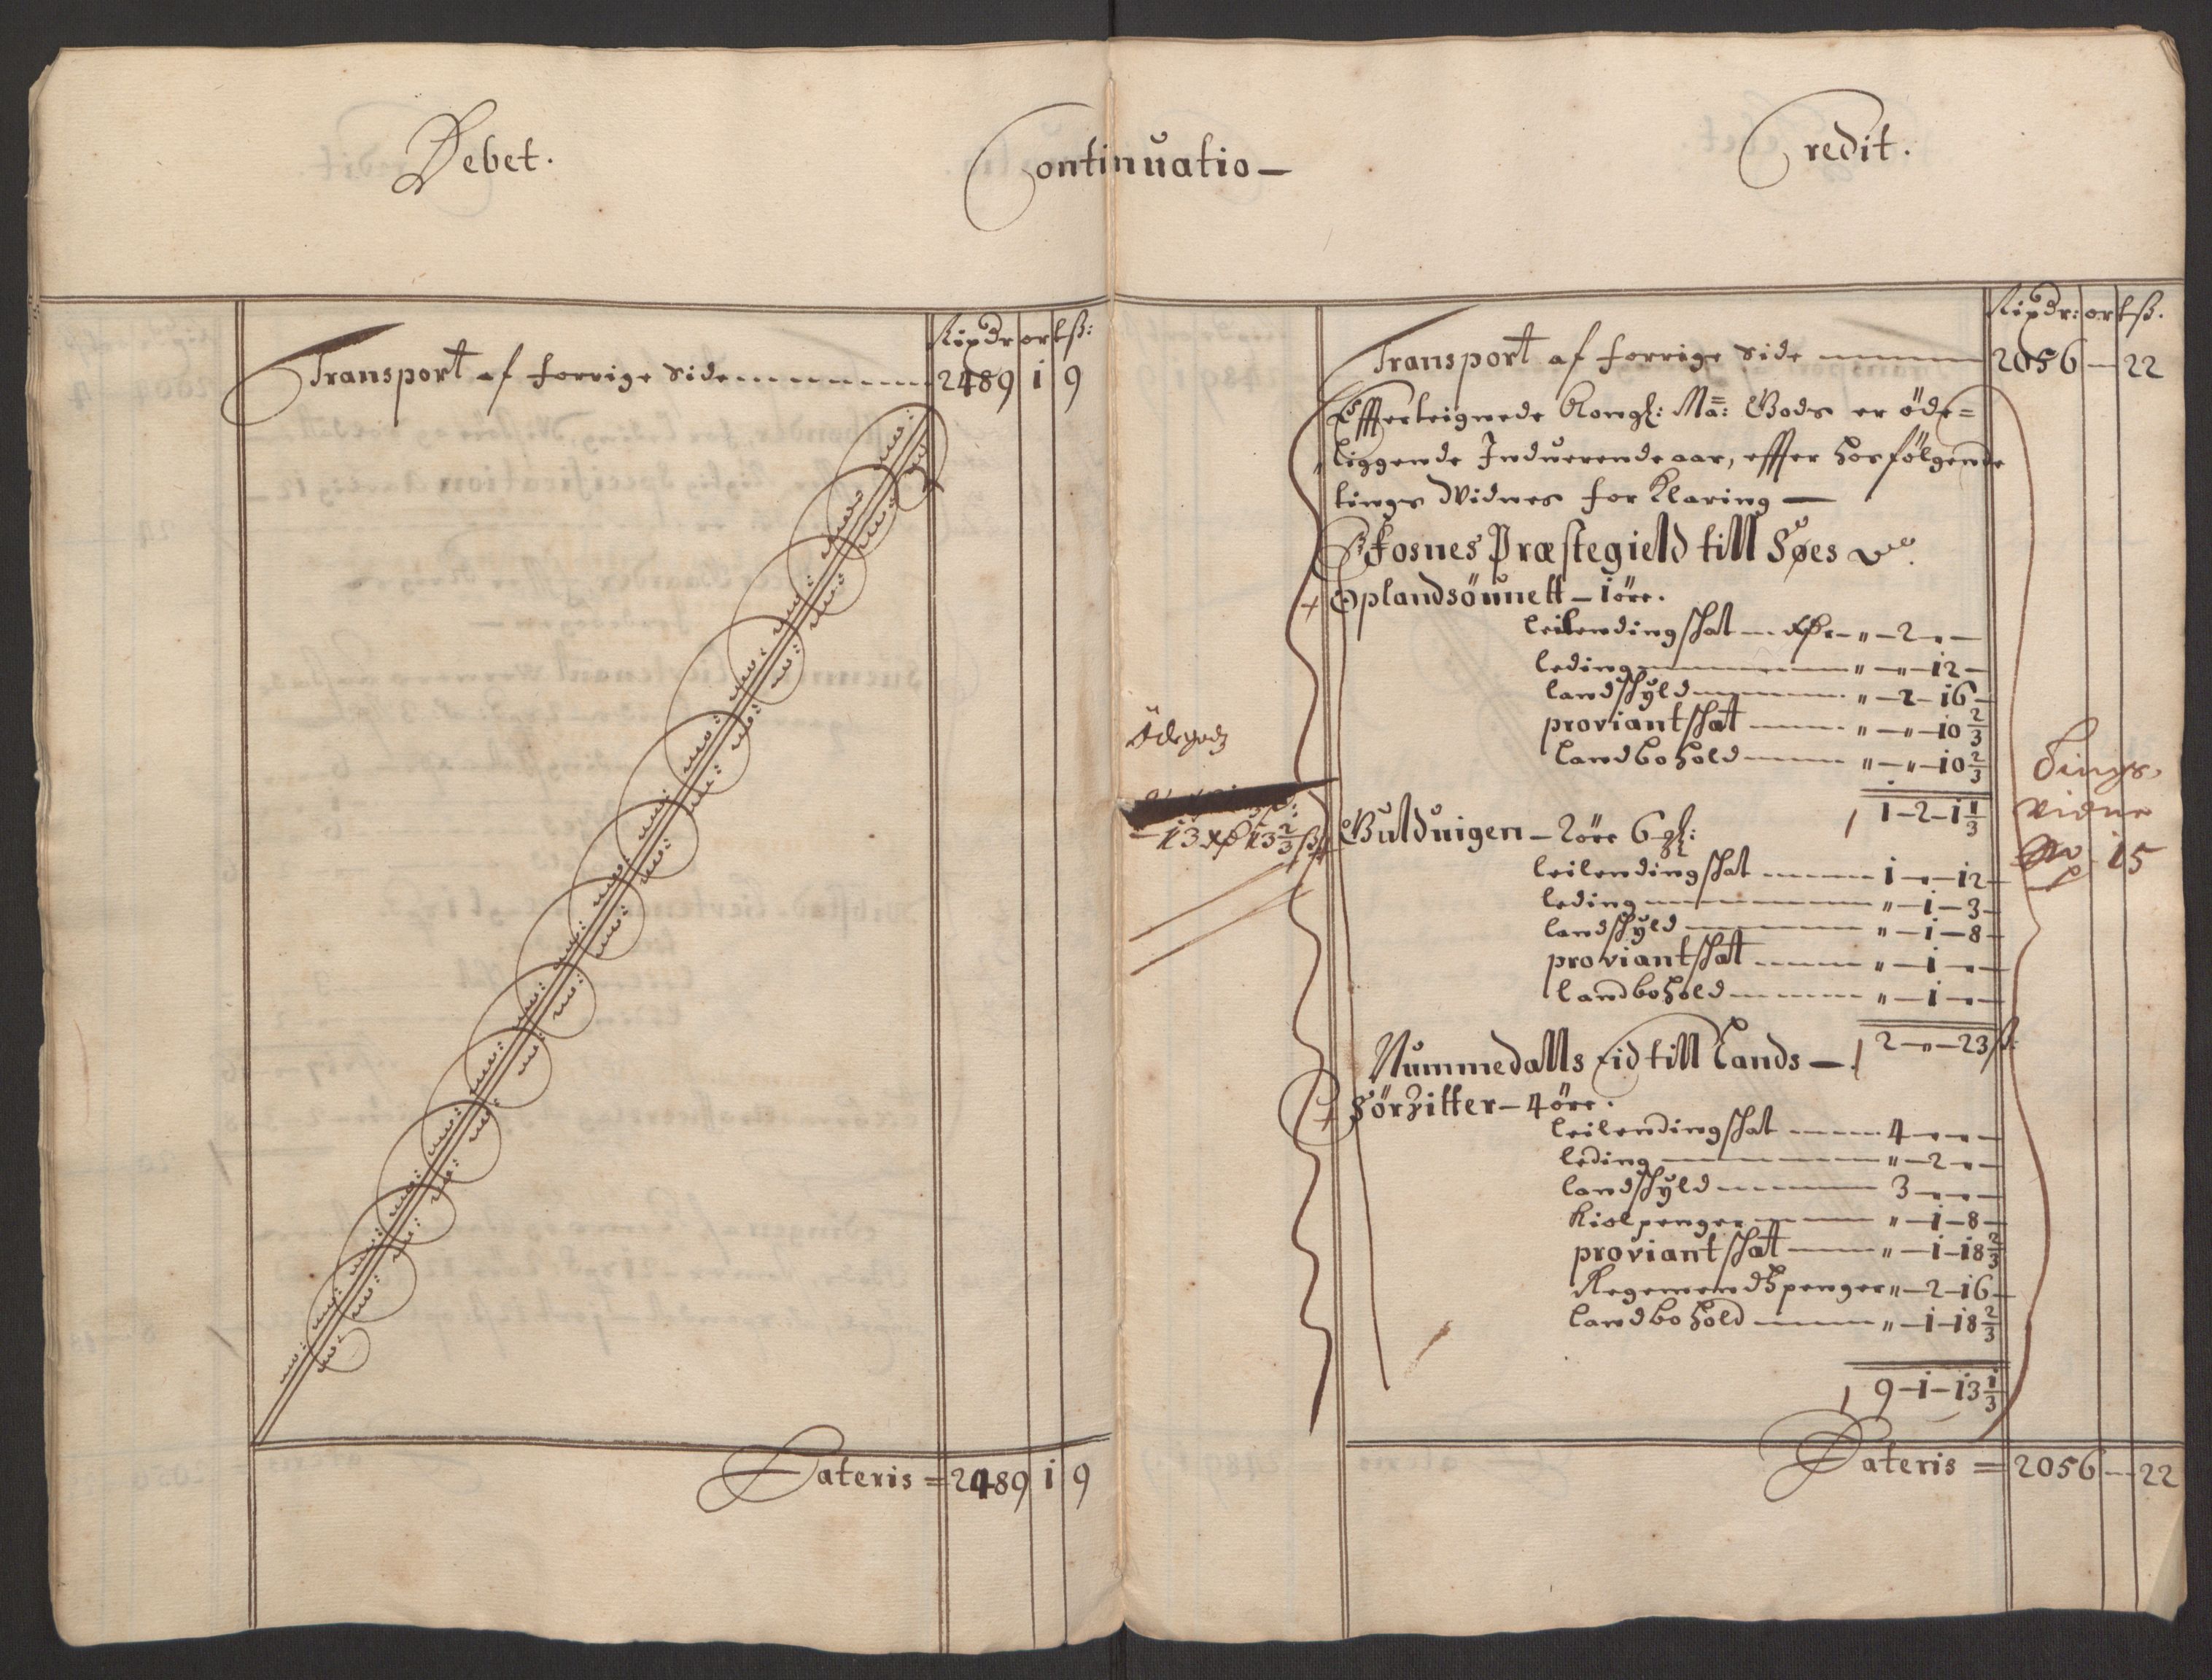 Debet.
Continuatio
Credit.
Rixdr ort ß:
Transport af forrige side 2489 1 9
Lateris = 2489 1 9
Rixdr: ort ß.
Transport af forrige side 2056 — 22
Effterteignede Kongl: Ma: Gods er øde=
liggende Induerende aar, effter hosfølgende
tings Widnes for Klaring —
Fosnes Præstegield till Søes
Oplandsöunett — 1 öre.
leilendingschat — " — 2 " —
leding — " — " — 12 —
landschyld — " — 2 — 16 —
proviantschat — " — " — 10 2/3
landbohold — " — " — 10 2/3
1 — 2 — 1 1/3
Ödegodz
— 13 13 2/3 ß
Tings
vidne
No 15
Bulduigen — 2 öre 6
leilendingschat — 1 — " — 12 —
leding — " — 1 — 3 —
landschyld — " — 1 — 8 —
proviantschatt — " — 1 — " —
landbohold — " — 1 — " —
2 — " — 23 ß:
Nummedalls Eid till Lands —
Sörzitter — 4 öre.
leilendingschat — 4 — " — " —
leding — " — 2 — " —
landschyld — 3 — " — " —
Kiolpenger — " — 1 — 8 —
proviantschatt — " — 1 — 18 2/3
Regemendtzpenger " — 2 — 16 —
landbohold — " — 1 — 18 2/3
9 — 1 — 13 1/3
Lateris = 2056 — 22